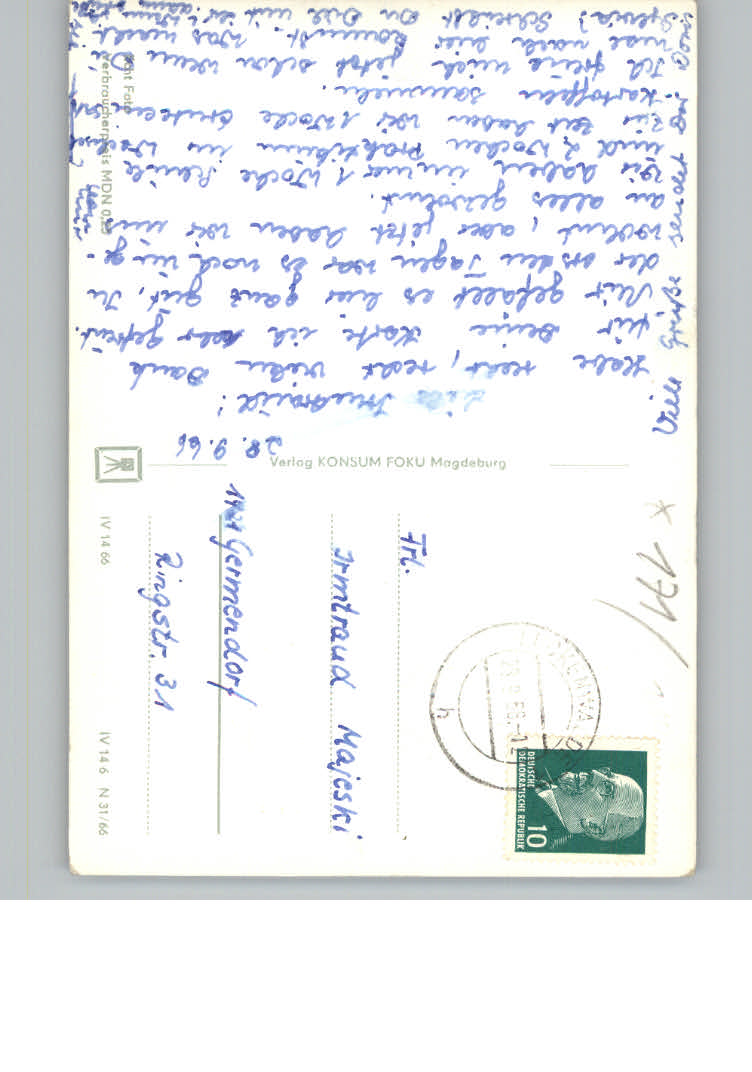 28. 9. 66
Liebe Irmtraud!
Habe recht, recht vielen Dank
für Deine Karte ich habe gefreut.
Mir gefällt es hier ganz gut, In
der ersten Tagen war es noch un ge-
wohnt, aber jetzt haben wir uns
an alles gewöhnt.
Wir haben immer 1 Woche Schule
und 2 Wochen Praktikum im Wechsel.
Zur Zeit haben wir 1 Woche Ernteeinsatz
Kartoffeln sammeln.
Ich freue mich jetzt schon wenn Du
mal nach hier kommst. Was macht
Schreibst Du mit ihr
Viele Grüße sendet Doris
Verlag KONSUM FOKU Magdeburg
Foto
Verbraucherpreis MDN
IV 14 66
IV 14 6 N 31/66
Frl.
Irmtraud Majeski
1421 Germendorf
Ringstr. 31
* 171/
h
DEUTSCHE
DEMOKRATISCHE REPUBLIK
10